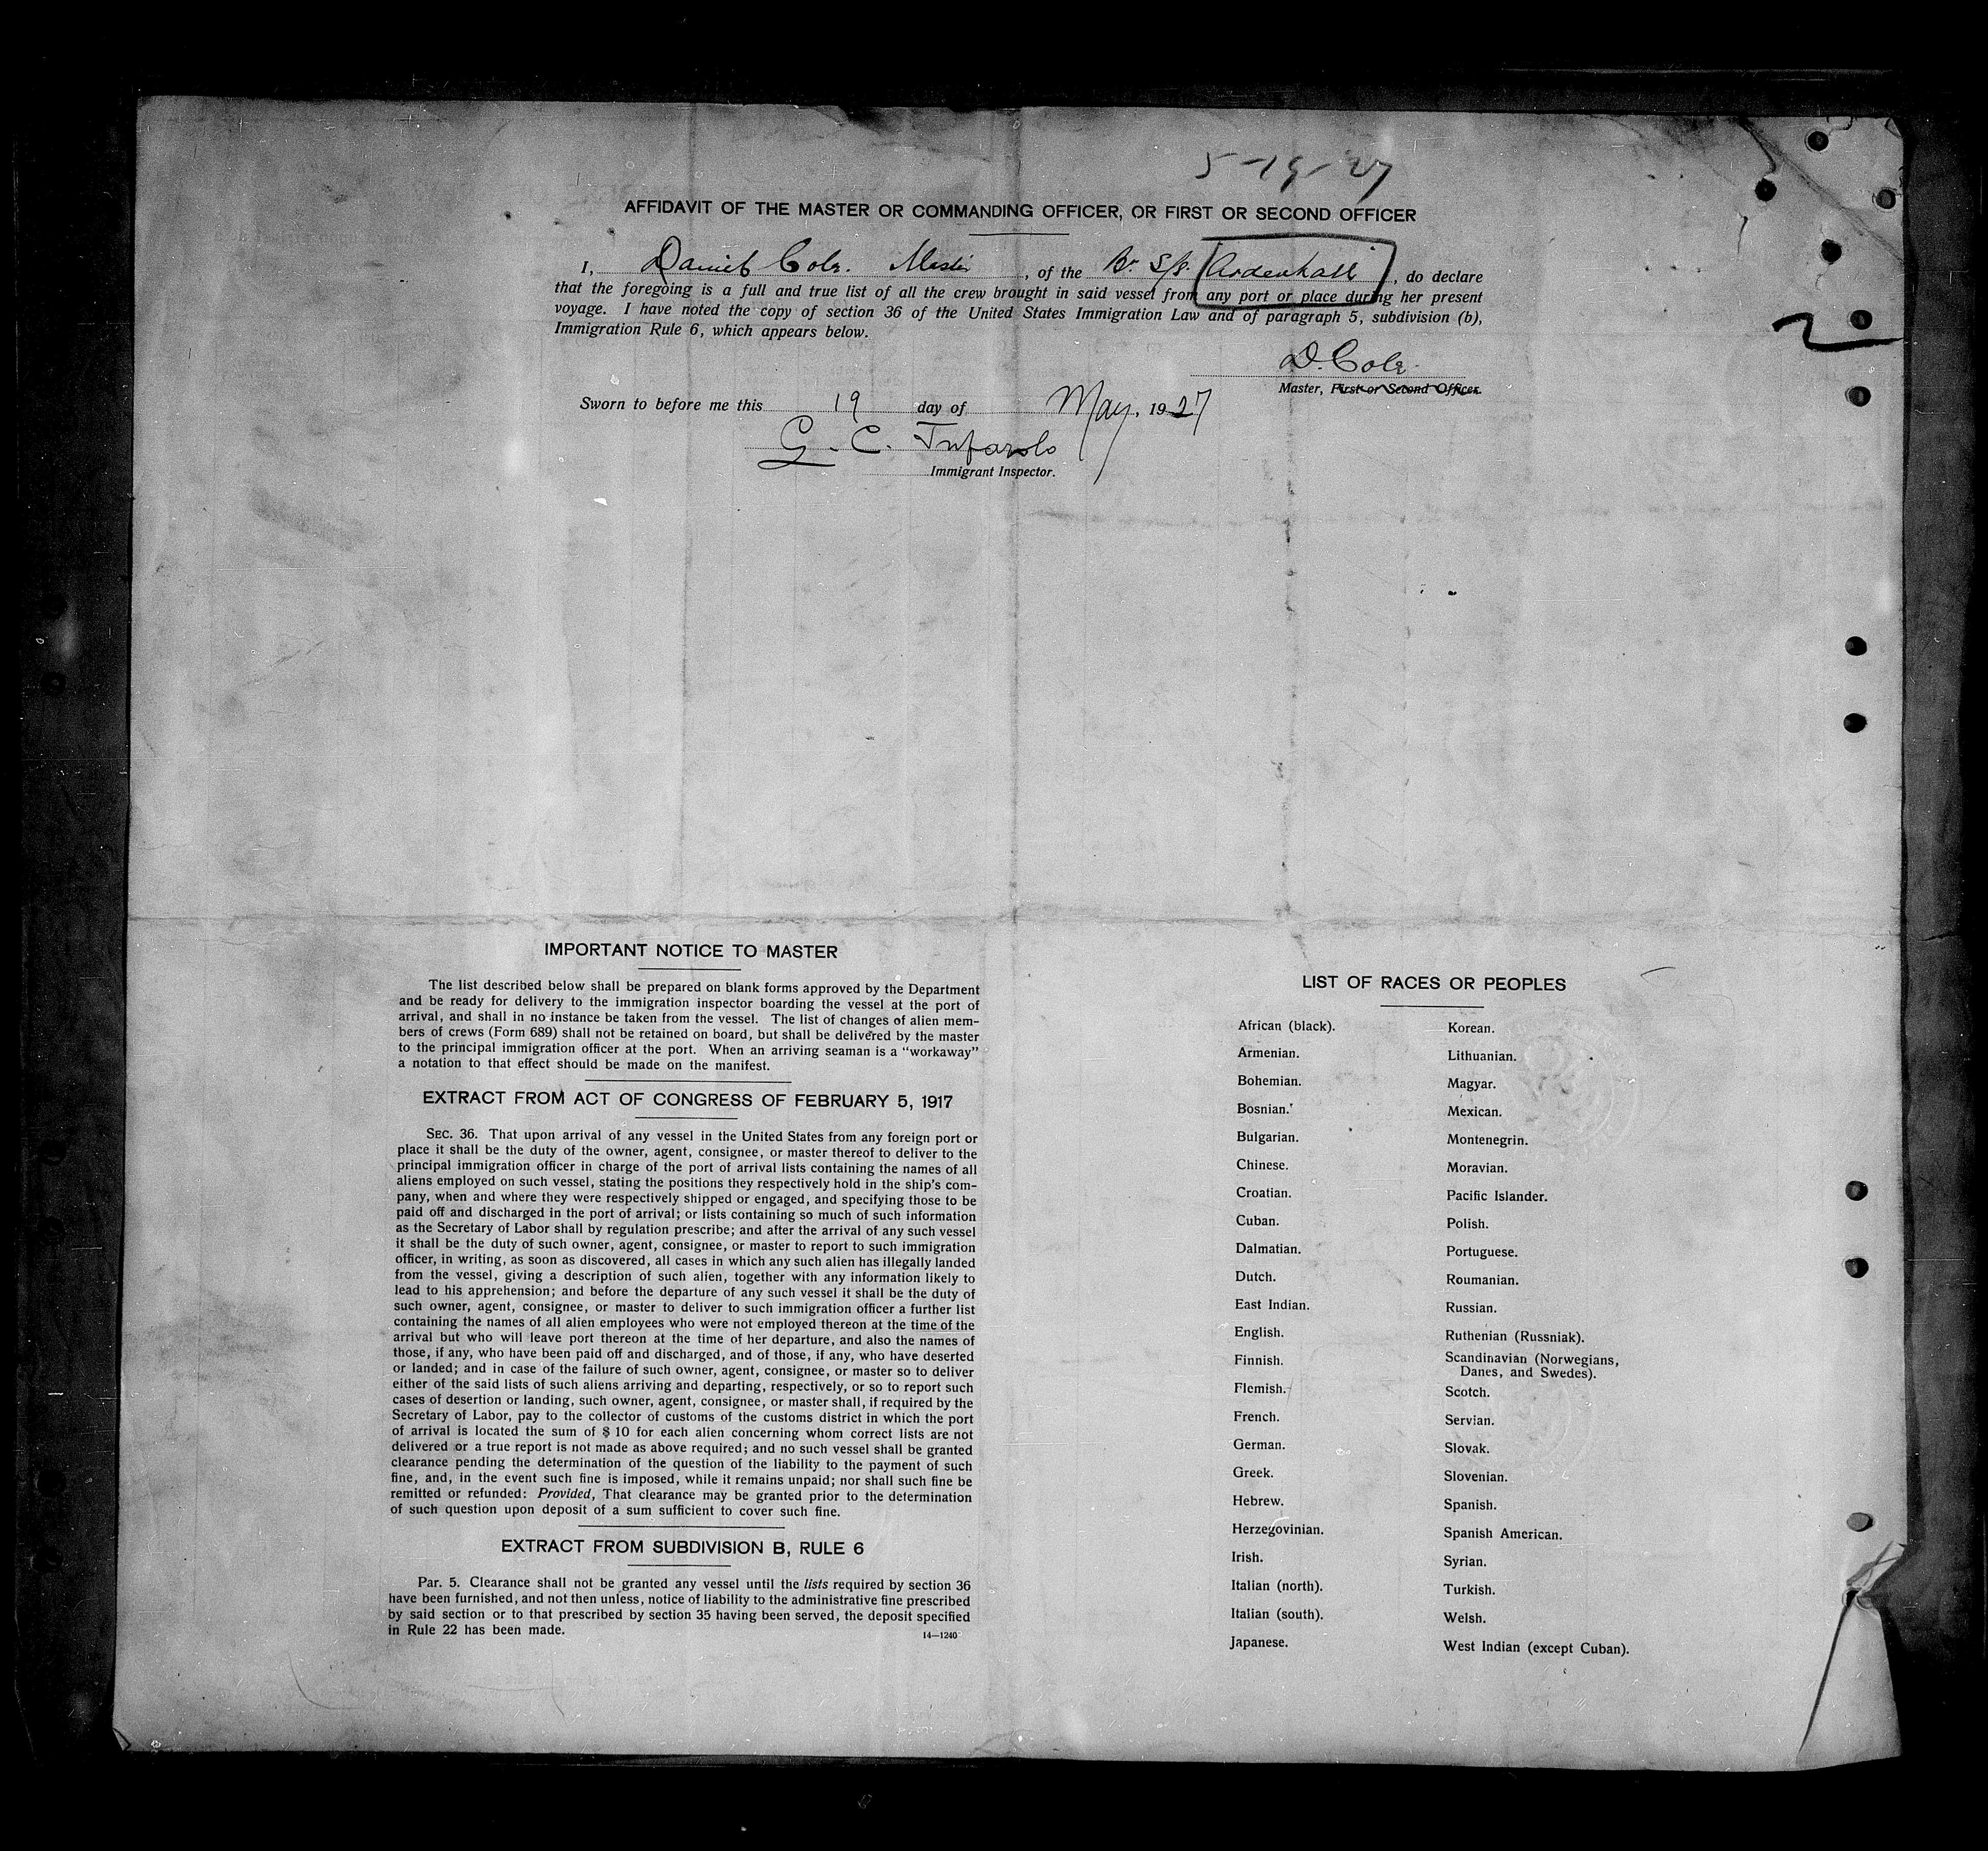 5-19-27
AFFIDAVIT OF THE MASTER OR COMMANDING OFFICER, OR FIRST OR SECOND OFFICER
I, Daniel Cole. Master, of the Br. S/s. "Ardenhall", do declare
that the foregoing is a full and true list of all the crew brought in said vessel from any port or place during her present
voyage. I have noted the copy of section 36 of the United States Immigration Law and of paragraph 5, subdivision (b),
Immigration Rule 6, which appears below.
D. Cole.
Master, First or Second Officer.
Sworn to before me this 19 day of May, 1927
G. C.
Immigrant Inspector.
IMPORTANT NOTICE TO MASTER
The list described below shall be prepared on blank forms approved by the Department
and be ready for delivery to the immigration inspector boarding the vessel at the port of
arrival, and shall in no instance be taken from the vessel. The list of changes of alien mem-
bers of crews (Form 689) shall not be retained on board, but shall be delivered by the master
to the principal immigration officer at the port. When an arriving seaman is a "workaway"
a notation to that effect should be made on the manifest.
EXTRACT FROM ACT OF CONGRESS OF FEBRUARY 5, 1917
SEC. 36. That upon arrival of any vessel in the United States from any foreign port or
place it shall be the duty of the owner, agent, consignee, or master thereof to deliver to the
principal immigration officer in charge of the port of arrival lists containing the names of all
aliens employed on such vessel, stating the positions they respectively hold in the ship's com-
pany, when and where they were respectively shipped or engaged, and specifying those to be
paid off and discharged in the port of arrival; or lists containing so much of such information
as the Secretary of Labor shall by regulation prescribe; and after the arrival of any such vessel
it shall be the duty of such owner, agent, consignee, or master to report to such immigration
officer, in writing, as soon as discovered, all cases in which any such alien has illegally landed
from the vessel, giving a description of such alien, together with any information likely to
lead to his apprehension; and before the departure of any such vessel it shall be the duty of
such owner, agent, consignee, or master to deliver to such immigration officer a further list
containing the names of all alien employees who were not employed thereon at the time of the
arrival but who will leave port thereon at the time of her departure, and also the names of
those, if any, who have been paid off and discharged, and of those, if any, who have deserted
or landed; and in case of the failure of such owner, agent, consignee, or master so to deliver
either of the said lists of such aliens arriving and departing, respectively, or so to report such
cases of desertion or landing, such owner, agent, consignee, or master shall, if required by the
Secretary of Labor, pay to the collector of customs of the customs district in which the port
of arrival is located the sum of $10 for each alien concerning whom correct lists are not
delivered or a true report is not made as above required; and no such vessel shall be granted
clearance pending the determination of the question of the liability to the payment of such
fine, and, in the event such fine is imposed, while it remains unpaid; nor shall such fine be
remitted or refunded: Provided, That clearance may be granted prior to the determination
of such question upon deposit of a sum sufficient to cover such fine.
EXTRACT FROM SUBDIVISION B, RULE 6
Par. 5. Clearance shall not be granted any vessel until the lists required by section 36
have been furnished, and not then unless, notice of liability to the administrative fine prescribed
by said section or to that prescribed by section 35 having been served, the deposit specified
in Rule 22 has been made.
14—1240
LIST OF RACES OR PEOPLES
African (black).
Armenian.
Bohemian.
Bosnian.
Bulgarian.
Chinese.
Croatian.
Cuban.
Dalmatian.
Dutch.
East Indian.
English.
Finnish.
Flemish.
French.
German.
Greek.
Hebrew.
Herzegovinian.
Irish.
Italian (north).
Italian (south).
Japanese.
Korean.
Lithuanian.
Magyar.
Mexican.
Montenegrin.
Moravian.
Pacific Islander.
Polish.
Portuguese.
Roumanian.
Russian.
Ruthenian (Russniak).
Scandinavian (Norwegians,
Danes, and Swedes).
Scotch.
Servian.
Slovak.
Slovenian.
Spanish.
Spanish American.
Syrian.
Turkish.
Welsh.
West Indian (except Cuban).